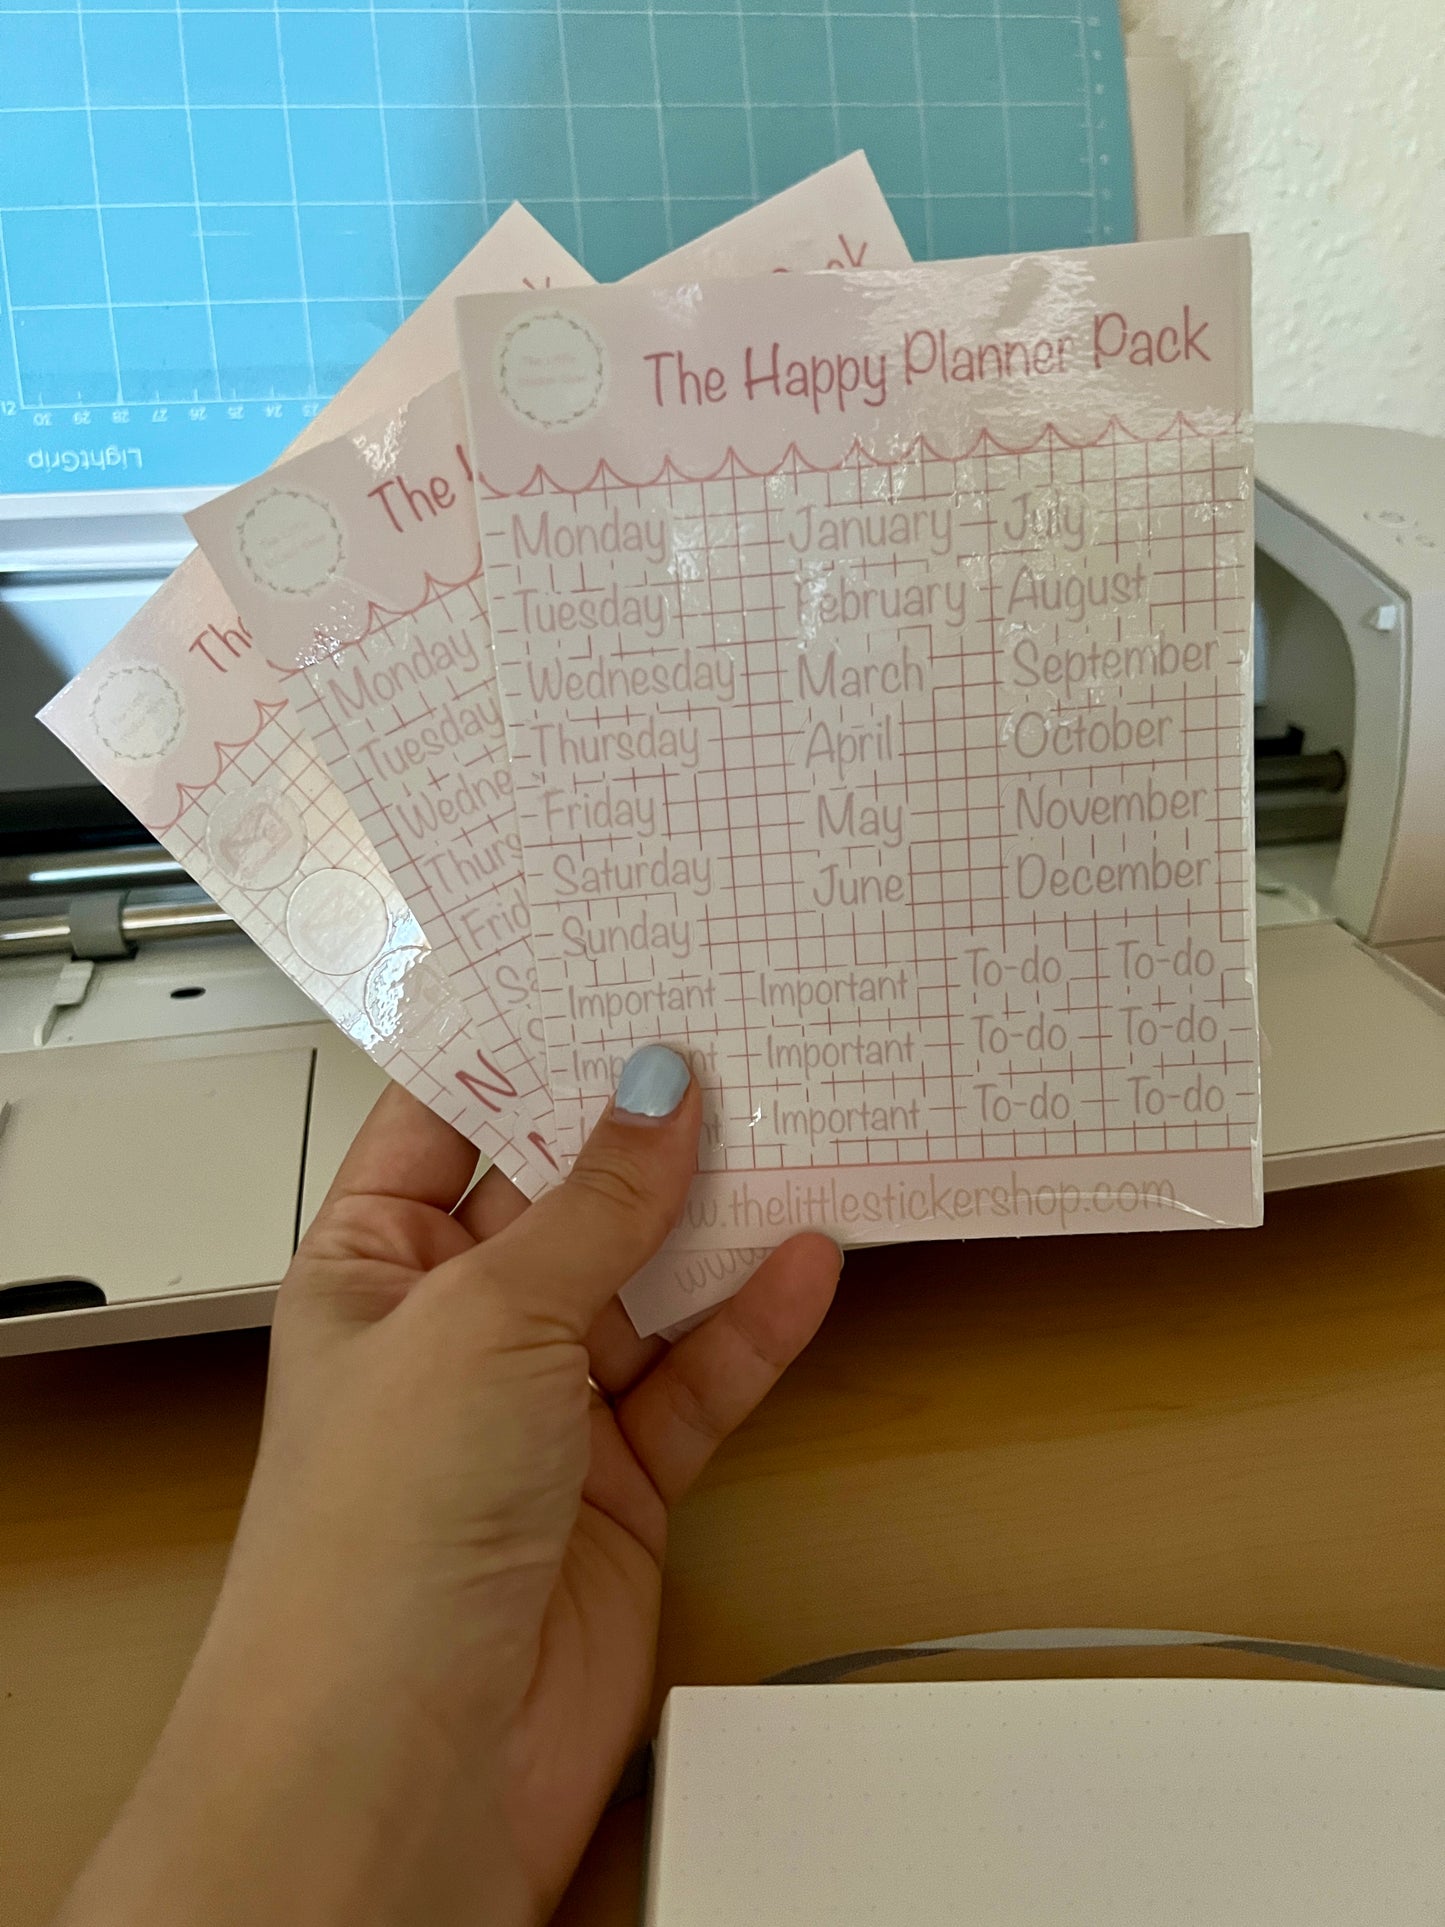 LightGrip
30 29 28 27 26 25 24 23
The Happy Planner Pack
Monday January July
Tuesday February August
Wednesday March September
Thursday April October
Friday May November
Saturday June December
Sunday
Important Important To-do To-do
Important To-do To-do
Important To-do To-do
w.thelittlestickershop.com
The
Monday
Tuesday
Wedne
Thurs
Frid
Sa
www
The
N